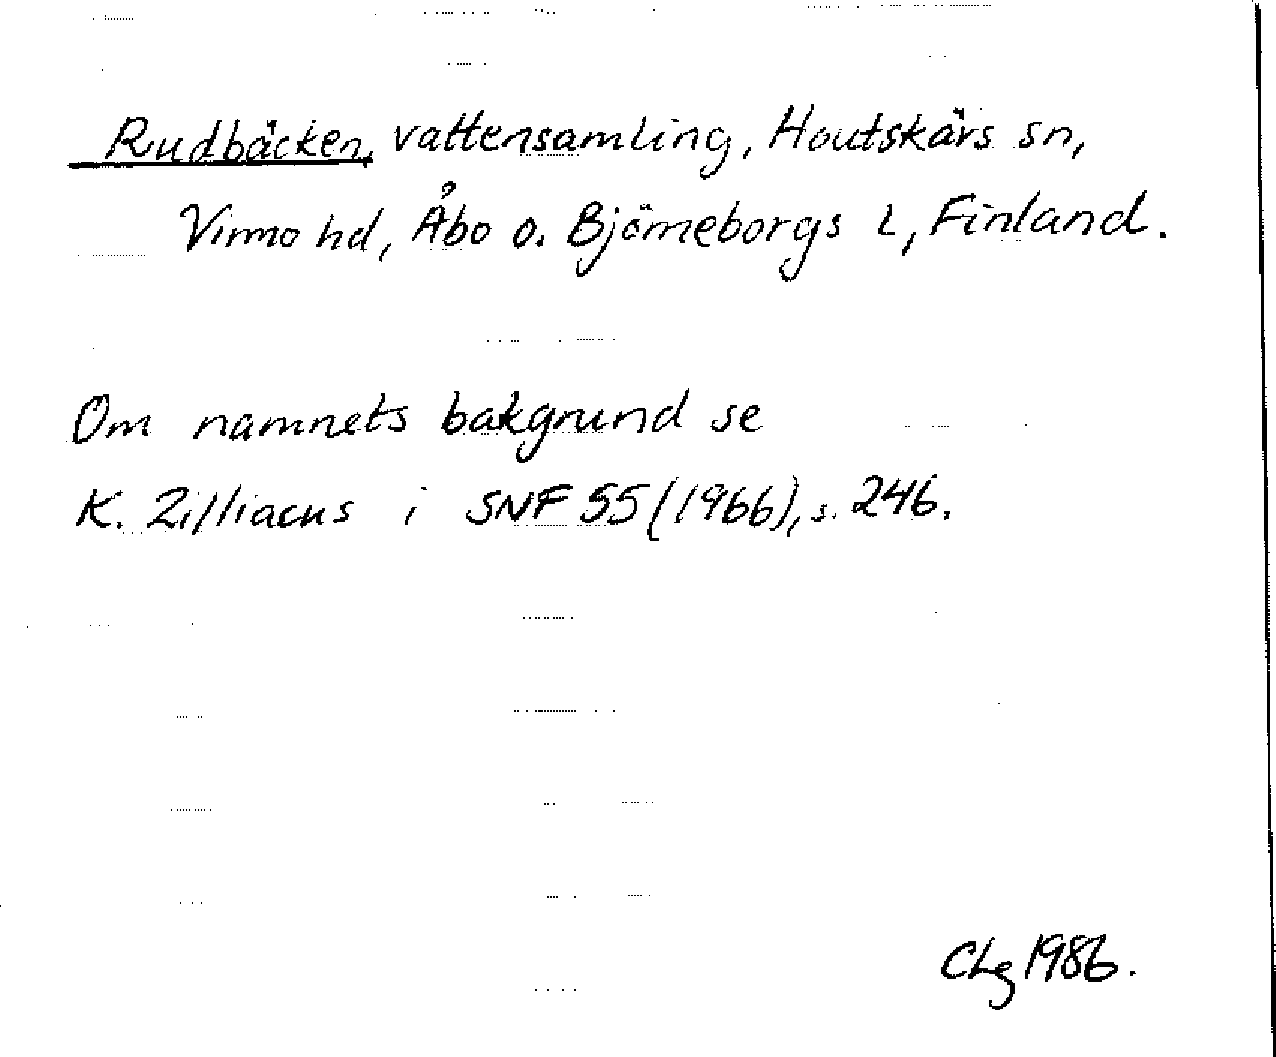 Rudbäcken, vattensamling, Houtskärs sn,
Virmo hd, Åbo o. Björneborgs L, Finland.
Om namnets bakgrund se
K. Zilliacus i SNF 55 (1966), s. 246.
CLg 1986.